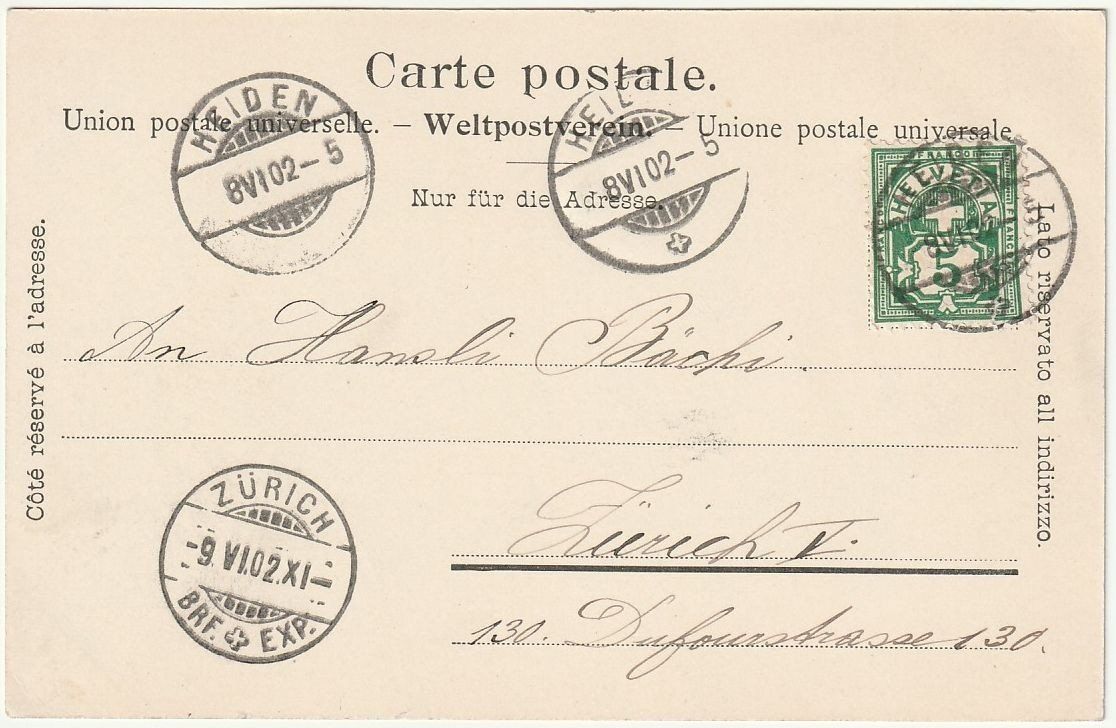 Carte postale.
Union postale universelle. – Weltpostverein. – Unione postale universale
Nur für die Adresse.
Côté réservé à l'adresse.
Lato riservato all indirizzo.
HEIDEN
8 VI 02 – 5
HEID
8 VI 02 – 5
FRANCO
HELVETIA
FRANCO
5
An Hansli Bächi.
Zürich V.
130. Dufourstrasse 130.
ZÜRICH
- 9. VI. 02. XI -
BRF. EXP.